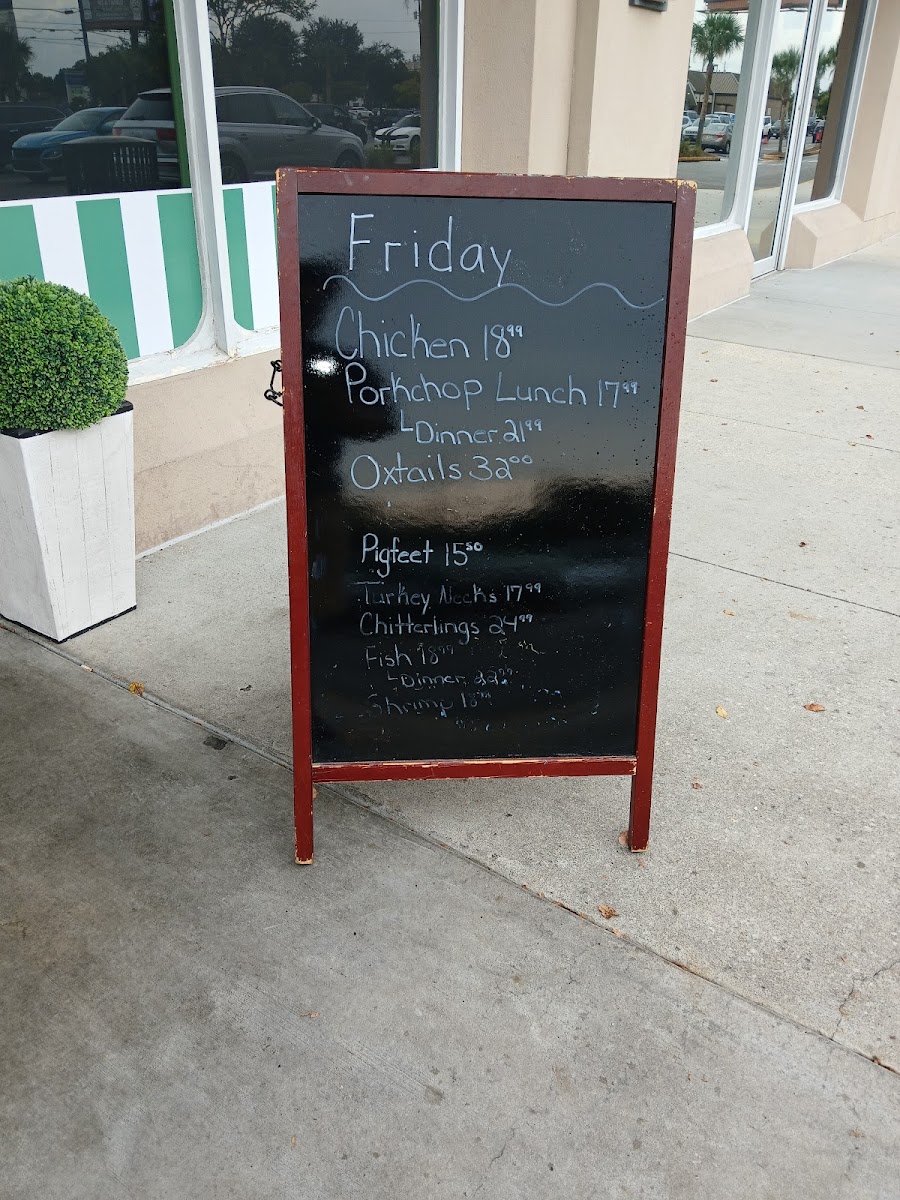 Friday
Chicken 18⁹⁹
Porkchop Lunch 17⁹⁹
Dinner 21⁹⁹
Oxtails 32⁰⁰
Pigfeet 15⁵⁰
Turkey Necks 17⁹⁹
Chitterlings 24⁹⁹
Fish 18⁹⁹
Dinner 22⁹⁹
Shrimp 18⁹⁹